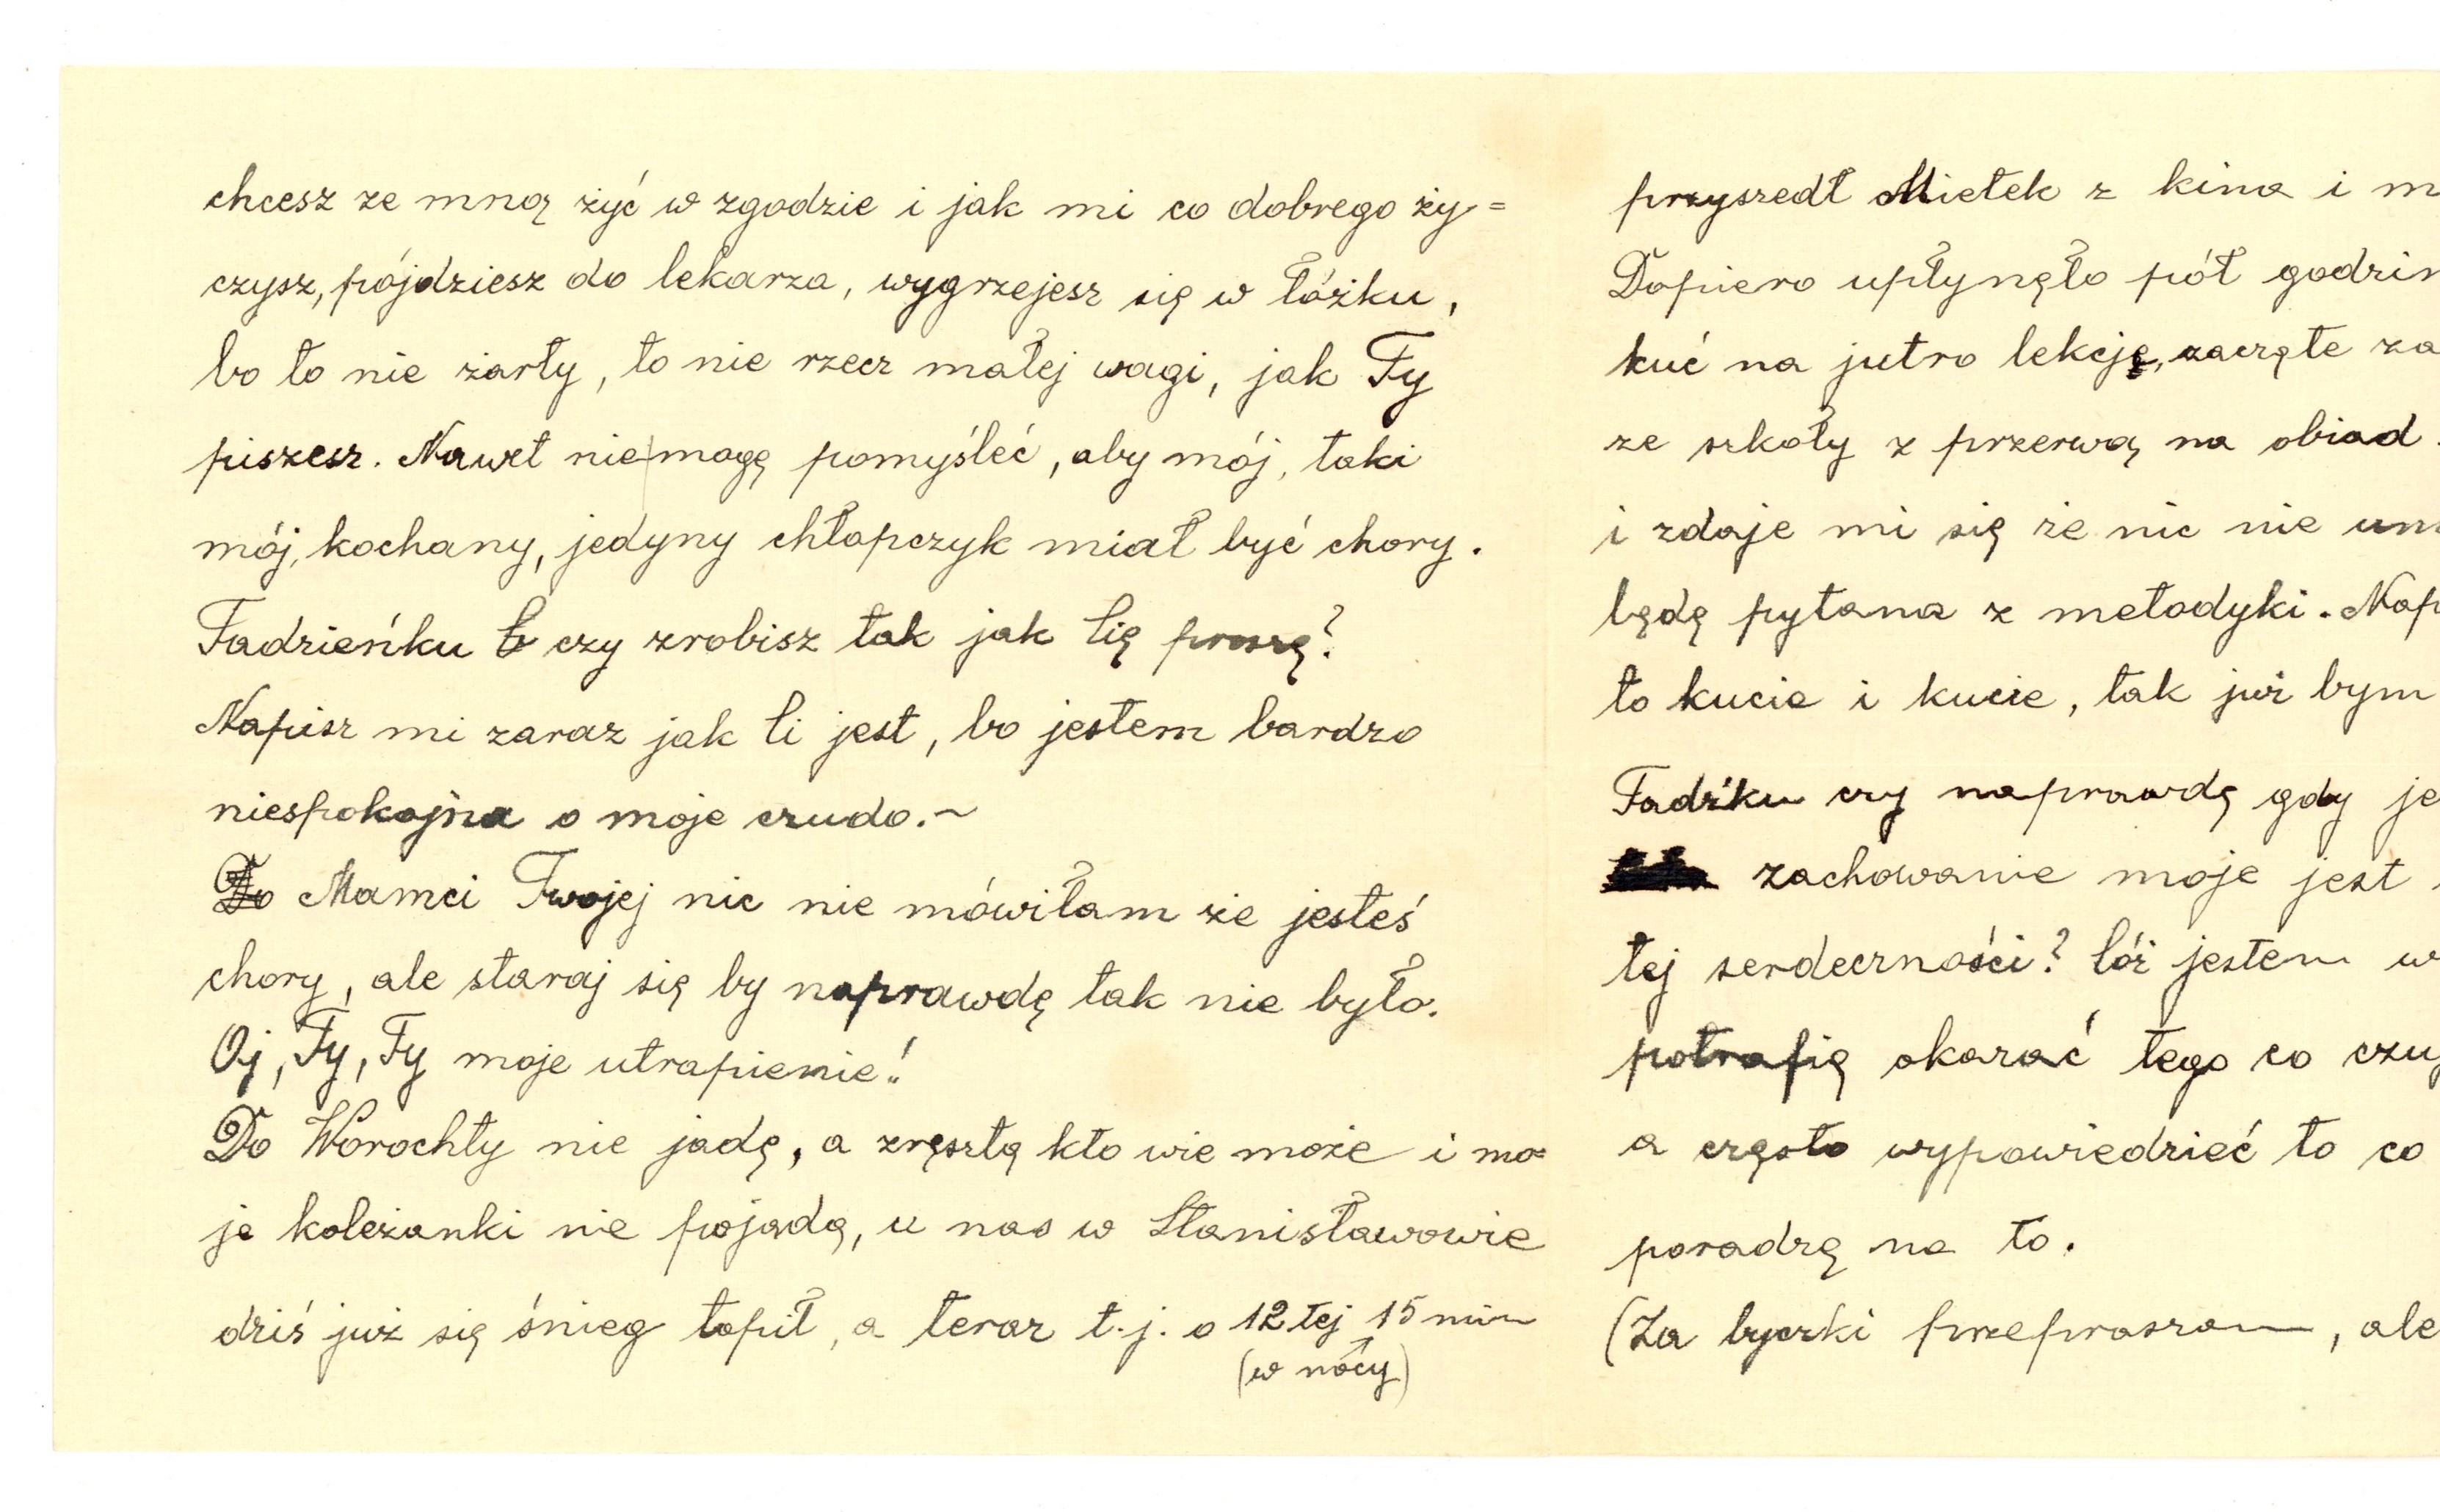 chcesz ze mną żyć w zgodzie i jak mi co dobrego ży=
czysz, pójdziesz do lekarza, wygrzejesz się w łóżku,
bo to nie żarty, to nie rzecz małej wagi, jak Ty
piszesz. Nawet nie|mogę pomyśleć, aby mój, taki
mój, kochany, jedyny chłopczyk miał być chory.
Tadzieńku czy zrobisz tak jak Cię proszę?
Napisz mi zaraz jak Ci jest, bo jestem bardzo
niespokojna o moje cudo.~
Do Mamci Twojej nic nie mówiłam że jesteś
chory, ale staraj się by naprawdę tak nie było.
Oj, Ty, Ty moje utrapienie!
Do Worochty nie jadę, a zręsztą kto wie może i mo=
je koleżanki nie pojadą, u nas w Stanisławowie
dziś już się śnieg topił, a teraz t.j. o 12tej 15 min
(w nocy)
przyszedł Mietek z kina i m
Dopiero upłynęło pół godzin
kuć na jutro lekcję, zaczęte za
ze szkoły z przerwą na obiad.
i zdaje mi się że nic nie um
będę pytana z metodyki. Nap
to kucie i kucie, tak już bym
Tadźku czy naprawdę gdy je
zachowanie moje jest
tej serdeczności? Cóż jestem w
potrafię okazać tego co czuj
a często wypowiedzieć to co
poradzę na to.
(Za byczki przepraszam, ale